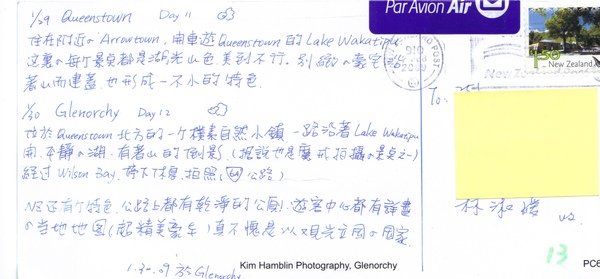 1/29 Queenstown Day 11
住在附近の Arrowtown, 開車遊 Queenstown 的 Lake Wakatipu
這裏の每个景桌都是湖光山色, 美到不行。別緻の豪宅沿
著山而建蓋, 也形成一不小的特色.
1/30 Glenorchy Day 12
位於 Queenstown 北方的一个樸素自然小鎮 一路沿著 Lake Wakatipu
開, 平靜の湖, 有著山的倒影 (据說也是魔戒拍攝の景点之一)
經過 Wilson Bay, 停下休息, 拍照, (公路)
NZ 还有个特色, 公路上都有乾淨的公厠, 遊客中心都有詳盡
の当地地图 (超精美豪华) 真不愧是以观光立國の國家.
1.30.09 於 Glenorchy
Kim Hamblin Photography, Glenorchy
Par Avion Air
POST
1.50
New Zealand
New Zealand
To:
林淑
13
PC6